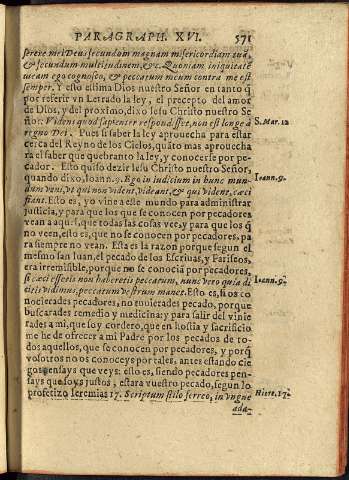 PARAGRAPH. XVI. 571
serere mei Deus secundum magnam misericordiam tuã,
& secundum multitudinem, &c. Quoniam iniquitatẽ
meam ego cognosco, & peccatum meum contra me est
semper. Y esto estima Dios nuestro Señor en tanto q̃
por referir vn Letrado la ley, el precepto del amor
de Dios, y del proximo, dixo Iesu Christo nuestro Se
ñor: Videns quod sapienter respondisset, non est longe à
S. Mar. 12
regno Dei. Pues si saber la ley aprouecha para estar
cerca del Reyno de los Cielos, quãto mas aprouecha
rà el saber que quebranto la ley, y conocerse por pe-
cador. Esto quiso dezir Iesu Christo nuestro Señor,
quando dixo, Ioann. 9. Ego in iudicium in hunc mun
Ioann. 9.
dum veni, vt qui non vident, videant, & qui vident, cæci
fiant. Esto es, yo vine a este mundo para administrar
justicia, y para que los que se conocen por pecadores
vean a aquel, que todas las cosas vee, y para los que
no veen, esto es, que no se conocen por pecadores, pa
ra siempre no vean. Esta es la razon porque segun el
mesmo san Iuan, el pecado de los Escriuas, y Fariseos,
era irremisible, porque no se conocia por pecadores,
si cæci essetis non haberetis peccatum, nunc vero quia di
Ioann. 9.
citis videmus, peccatum vestrum manet. Esto es, si os co
nocierades pecadores, no tuuierades pecado, porque
buscarades remedio y medicina: y para salir del vinie
rades a mi, que soy cordero, que en hostia y sacrificio
me he de ofrecer a mi Padre por los pecados de to-
dos aquellos, que se conocen por pecadores, y porq̃
vosotros no os conoceys por tales, antes estando cie
gos pensays que veys: esto es, siendo pecadores pen-
says que soys justos, estara vuestro pecado, segun lo
profetizo Ieremias 17. Scriptum stilo ferreo, in vngue
Hiere. 17.
ada-